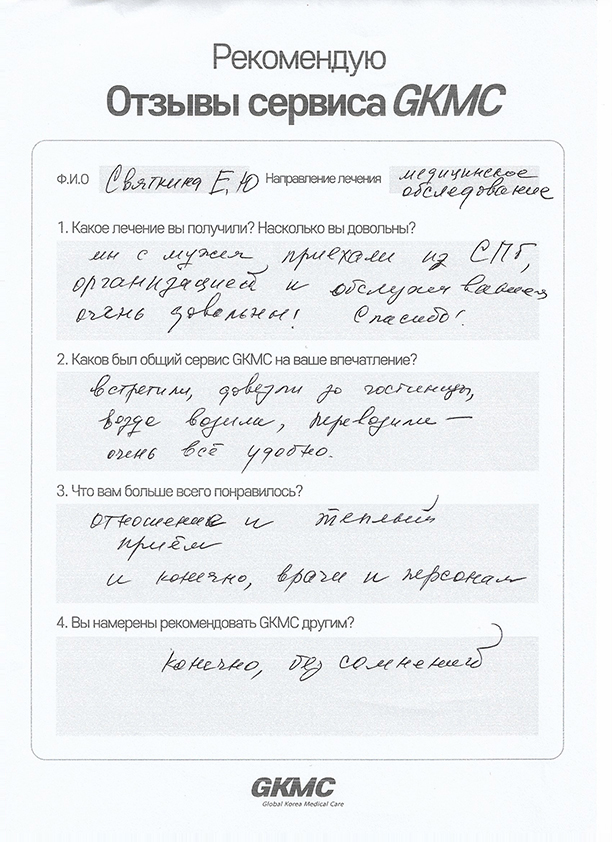 Рекомендую
Отзывы сервиса GKMC
Ф.И.О Святкина Е,Ю Направление лечения медицинское
обследование
1. Какое лечение вы получили? Насколько вы довольны?
мы с мужем приехали из СПб,
организацией и обслуживанием
очень довольны! Спасибо!
2. Каков был общий сервис GKMC на ваше впечатление?
встретили, довезли до гостиницы,
везде возили, переводили —
очень всё удобно.
3. Что вам больше всего понравилось?
отношение и теплый
приём
и конечно, врачи и персонал
4. Вы намерены рекомендовать GKMC другим?
конечно, без сомнений
GKMC
Global Korea Medical Care